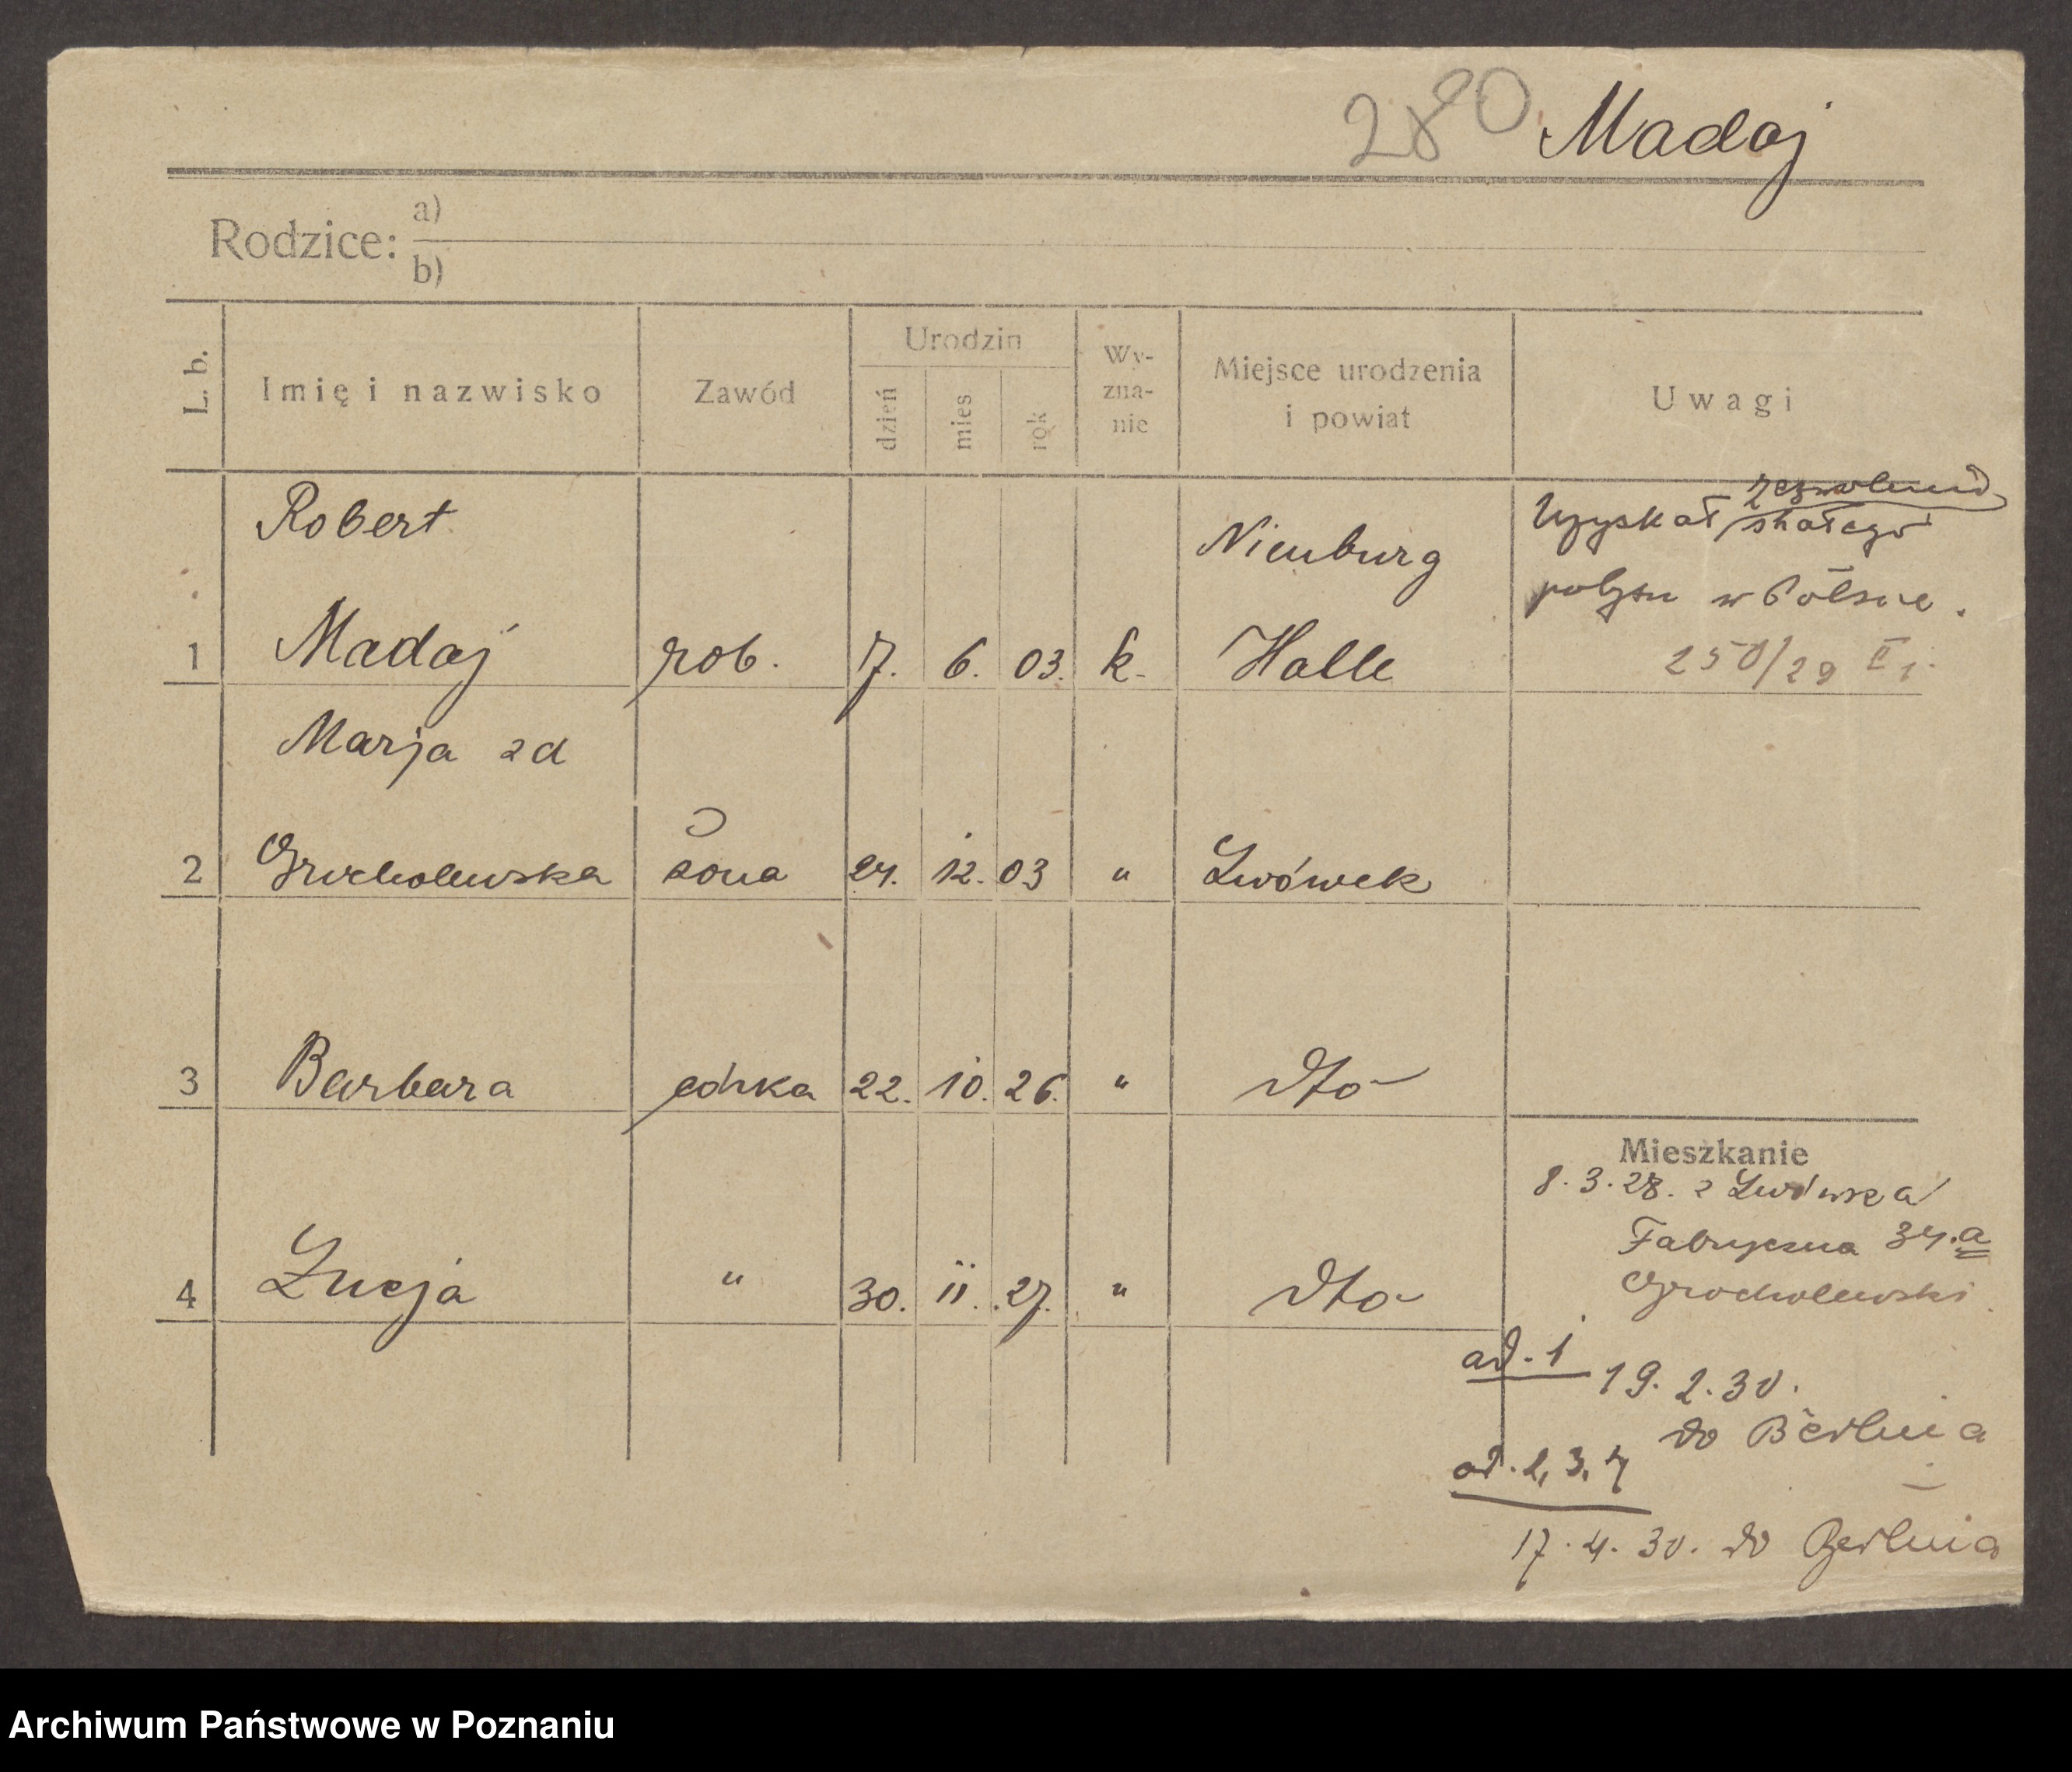 280 Madaj
Rodzice: a)
b)
L. b. Imię i nazwisko Zawód Urodzin dzień mies rok Wy-zna-nie Miejsce urodzenia i powiat Uwagi
Robert Nienburg Uzyskał zezwolenie stałego
pobytu w Polsce.
1 Madaj rob. 7. 6. 03. k. Halle 250/29
Marja zd
2 Grocholewska żona 24. 12. 03 " Lwówek
3 Barbara córka 22. 10. 26. " dto
Mieszkanie
8. 3. 28. z Lwówka
Fabryczna 34.a
Grocholewski
4 Łucja " 30. 11. 27. " dto
ad. 1 19. 2. 30.
do Berlina
ad. 2, 3, 4
17. 4. 30. do Berlina
Archiwum Państwowe w Poznaniu